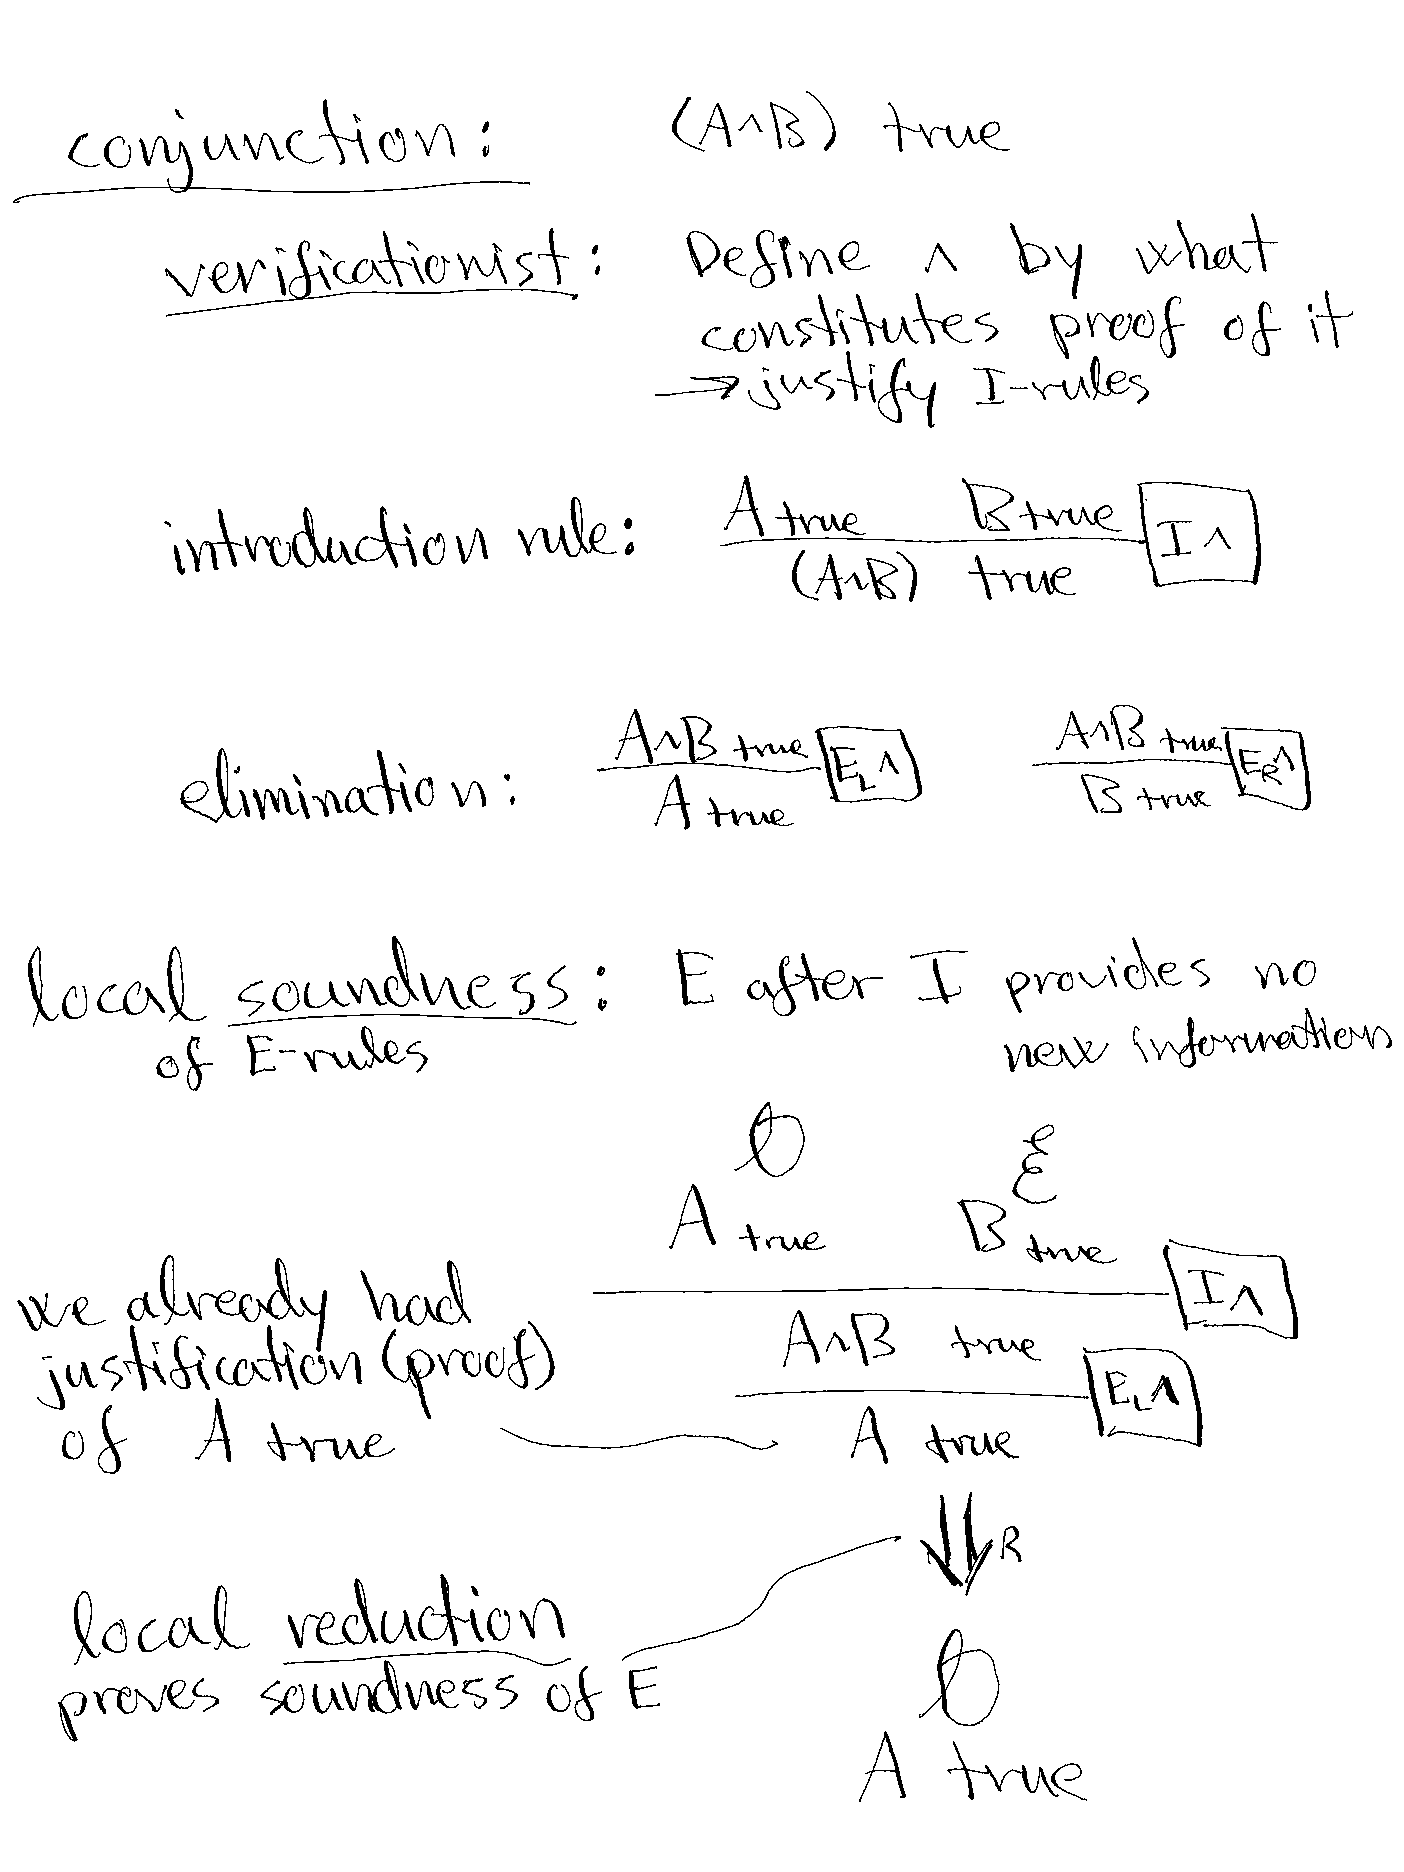 conjunction: (A∧B) true
verificationist: Define ∧ by what
constitutes proof of it
→ justify I-rules
introduction rule: A true B true I∧
(A∧B) true
elimination: A∧B true E_L∧ A∧B true E_R∧
A true B true
local soundness: E after I provides no
of E-rules new information
𝒟 ℰ
A true B true
I∧
we already had
justification (proof)
of A true
A∧B true
E_L∧
A true
⇓R
local reduction
proves soundness of E
𝒟
A true